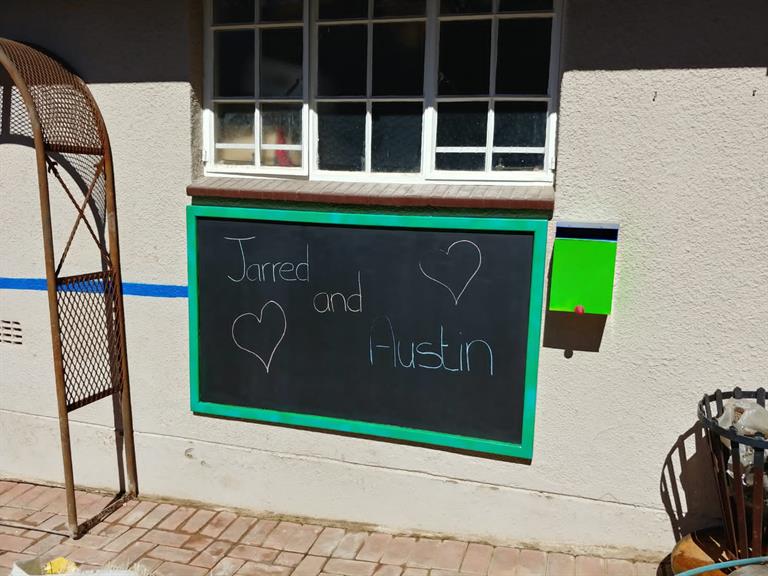 Jarred
and
Austin